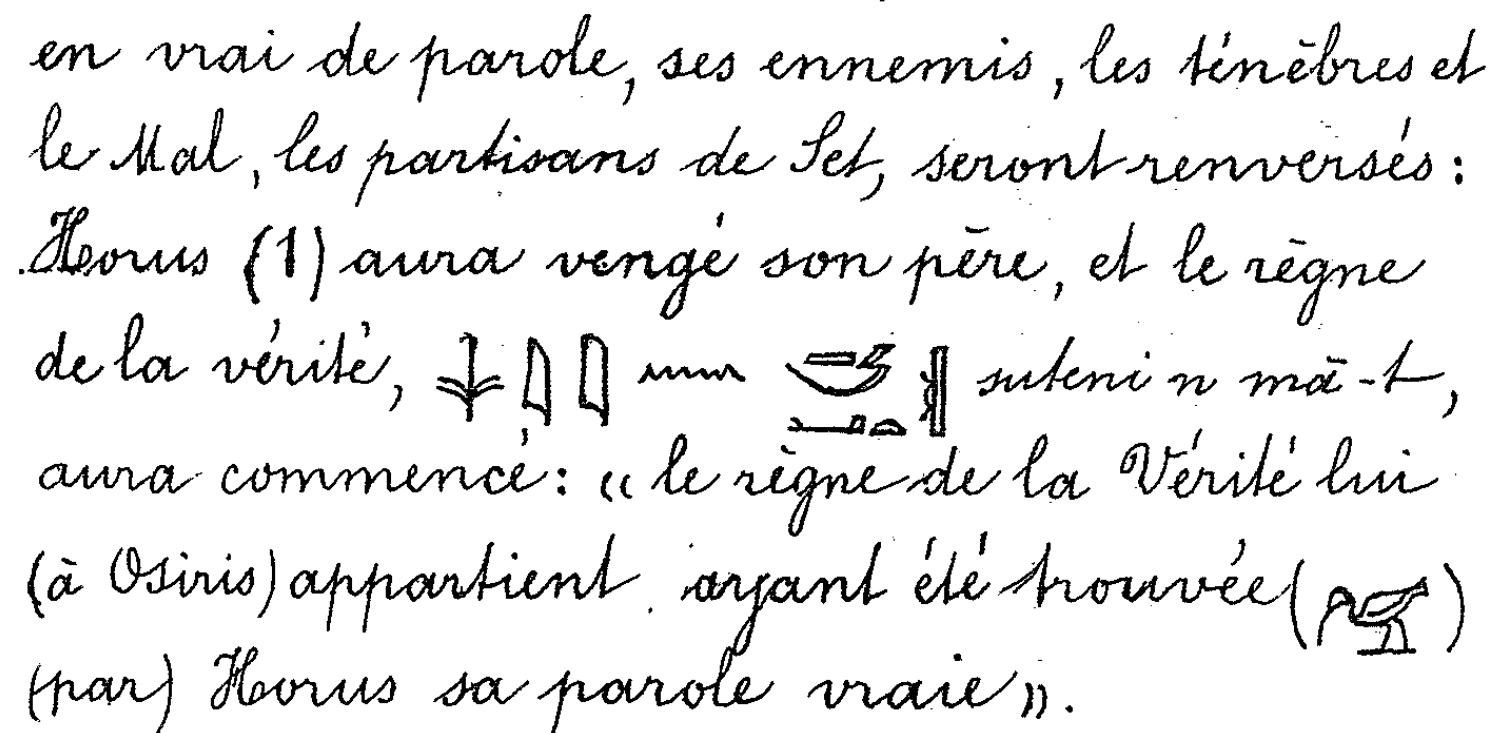 en vrai de parole, ses ennemis, les ténèbres et
le Mal, les partisans de Set, seront renversés:
Horus (1) aura vengé son père, et le règne
de la vérité, 𓇓𓇋𓇋 𓈖 suteni n mā-t,
aura commencé: « le règne de la Vérité lui
(à Osiris) appartient ayant été trouvée (𓅠)
(par) Horus sa parole vraie ».